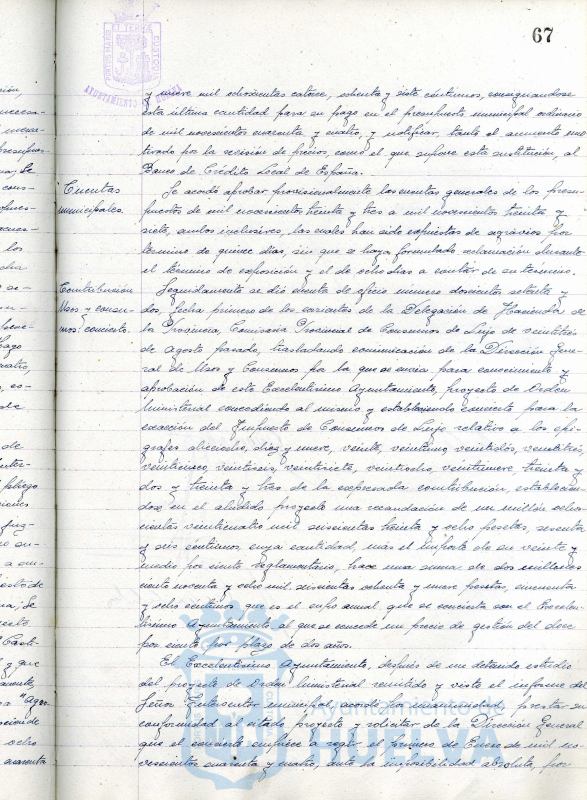 67
AYUNTAMIENTO
y nueve mil ochocientas catorce, ochenta y siete céntimos, consignándose
esta última cantidad para su pago en el presupuesto municipal ordinario
de mil novecientos cuarenta y cuatro, y notificar, tanto el aumento mo-
tivado por la revisión de precios, como el que supone esta sustitución, al
Banco de Crédito Local de España.
Cuentas
municipales.
Se acordó aprobar provisionalmente las cuentas generales de los presu-
puestos de mil novecientos treinta y tres a mil novecientos treinta y
siete, ambos inclusives, las cuales han sido expuestas de agravios, por
término de quince días, sin que se haya formulado reclamación durante
el término de exposición y el de ocho días a contar de su término.
Contribución
Usos y consu-
mos: concierto.
Seguidamente se dió cuenta de oficio número doscientos setenta y
dos, fecha primero de los corrientes de la Delegación de Hacienda de
la Provincia, Comisaría Provincial de Consumos de Lujo de veintitrés
de agosto pasado, trasladando comunicación de la Dirección Gene-
ral de Usos y Consumos por la que se envía para conocimiento y
aprobación de este Excelentísimo Ayuntamiento, proyecto de Orden
Ministerial concediendo al mismo y estableciendo concierto para la
exacción del Impuesto de Consumos de Lujo relativo a los epí-
grafes dieciocho, diez y nueve, veinte, veintiuno, veintidós, veintitrés,
veinticinco, veintiseis, veintisiete, veintiocho, veintinueve, treinta y
dos y treinta y tres de la expresada contribución, establecién-
dose en el aludido proyecto una recaudación de un millón ocho-
cientas veinticuatro mil seiscientas treinta y ocho pesetas, sesenta
y seis céntimos cuya cantidad, mas el importe de un veinte y
medio por ciento reglamentario, hace una suma de dos millones
ciento noventa y ocho mil seiscientas ochenta y nueve pesetas, cincuenta
y ocho céntimos que es el cupo anual que se concierta con el Excelen-
tísimo Ayuntamiento al que se concede un precio de gestión del doce
por ciento por plazo de dos años.
El Excelentísimo Ayuntamiento, después de un detenido estudio
del proyecto de Orden Ministerial remitido y visto el informe del
Señor Interventor municipal, acordó por unanimidad, prestar su
conformidad al citado proyecto y solicitar de la Dirección General
que el concierto empiece a regir el primero de Enero de mil no-
vecientos cuarenta y cuatro, ante la imposibilidad absoluta, por
Ayuntamiento de
HUELVA